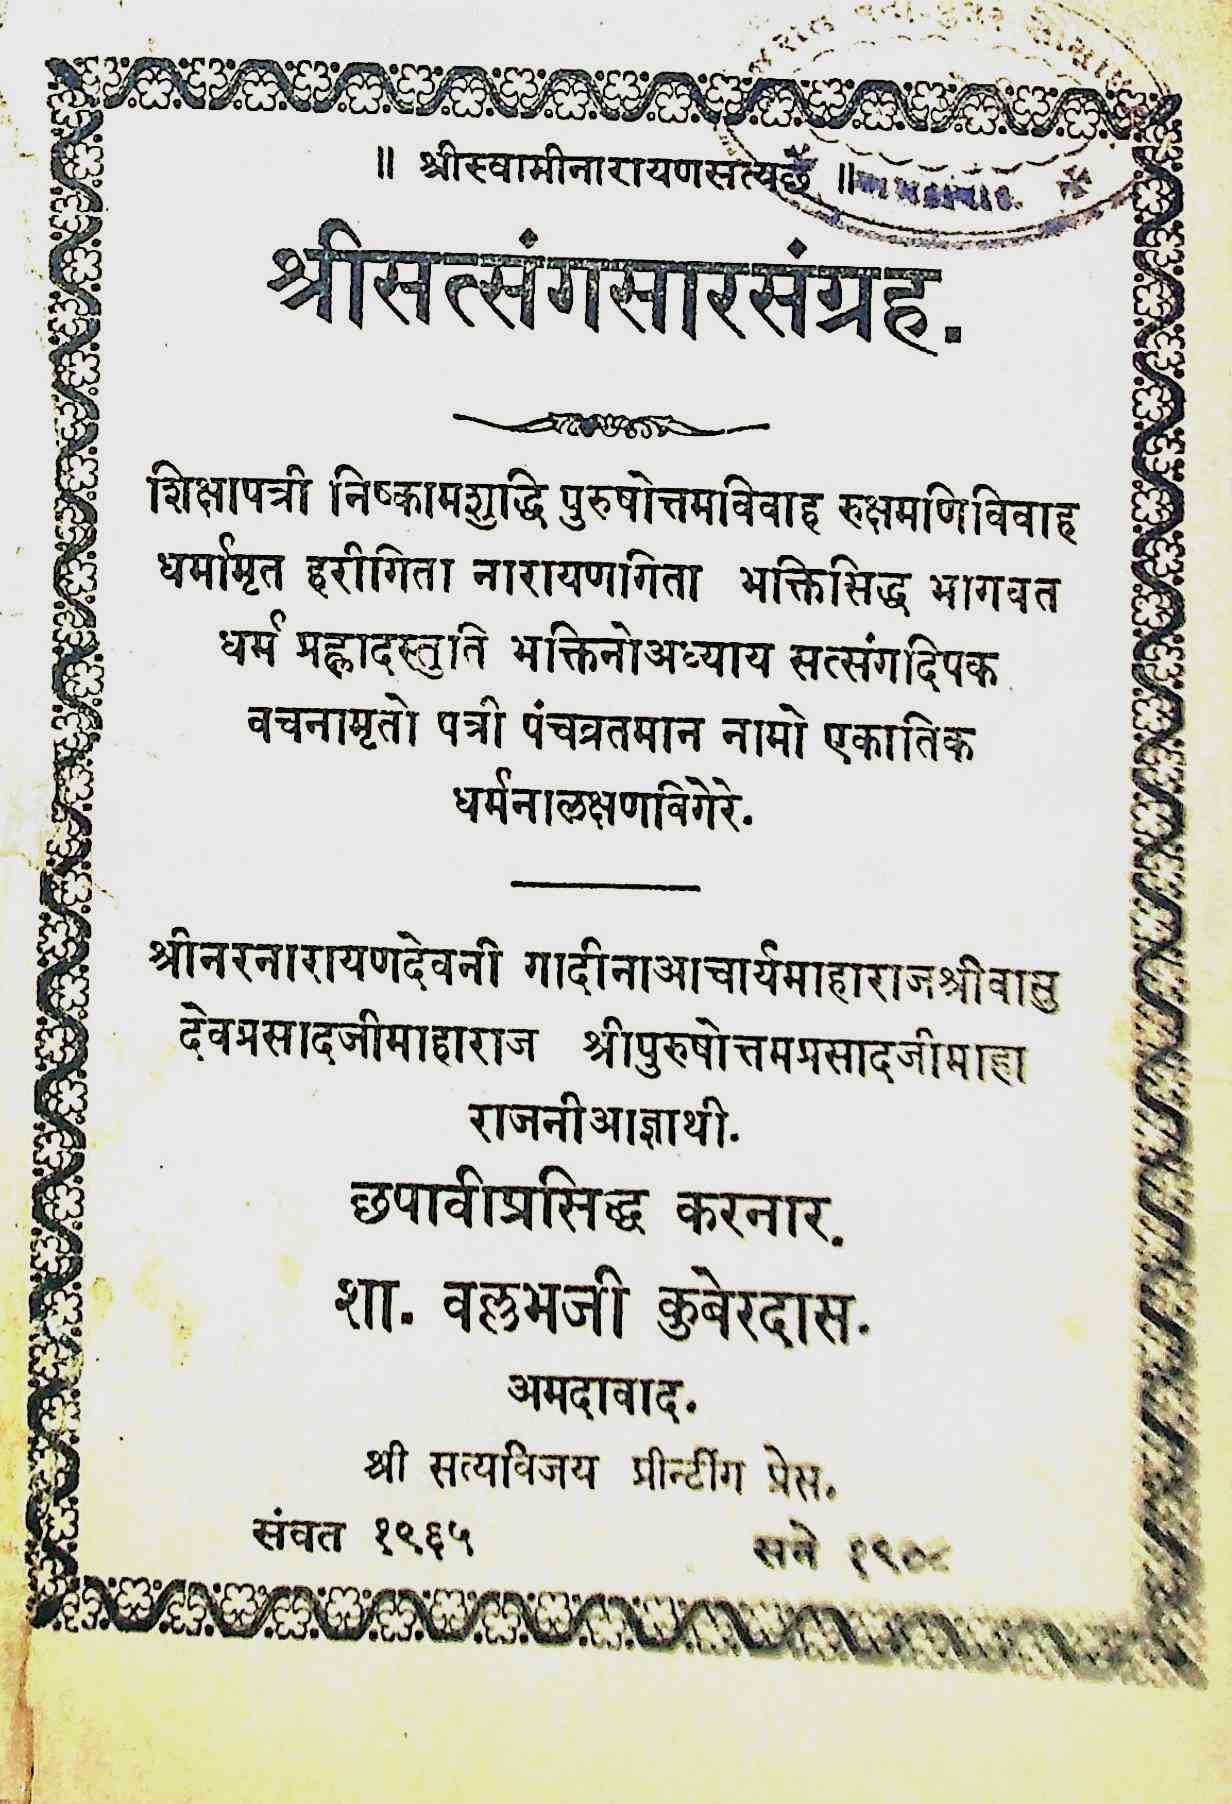 ॥ श्रीस्वामीनारायणसत्यछे ॥
श्रीसत्संगसारसंग्रह.
शिक्षापत्री निष्कामशुद्धि पुरुषोत्तमविवाह रुक्षमणिविवाह
धर्मामृत हरीगिता नारायणगिता भक्तिसिद्ध भागवत
धर्म प्रह्लादस्तुति भक्तिनोअध्याय सत्संगदिपक
वचनामृतो पत्री पंचव्रतमान नामो एकातिक
धर्मनालक्षणविगेरे.
श्रीनरनारायणदेवनी गादीनाआचार्यमाहाराजश्रीवासु
देवप्रसादजीमाहाराज श्रीपुरुषोत्तमप्रसादजीमाहा
राजनीआज्ञाथी.
छपावीप्रसिद्ध करनार.
शा. वल्लभजी कुबेरदास.
अमदावाद.
श्री सत्यविजय प्रीन्टींग प्रेस.
संवत १९६५
सने